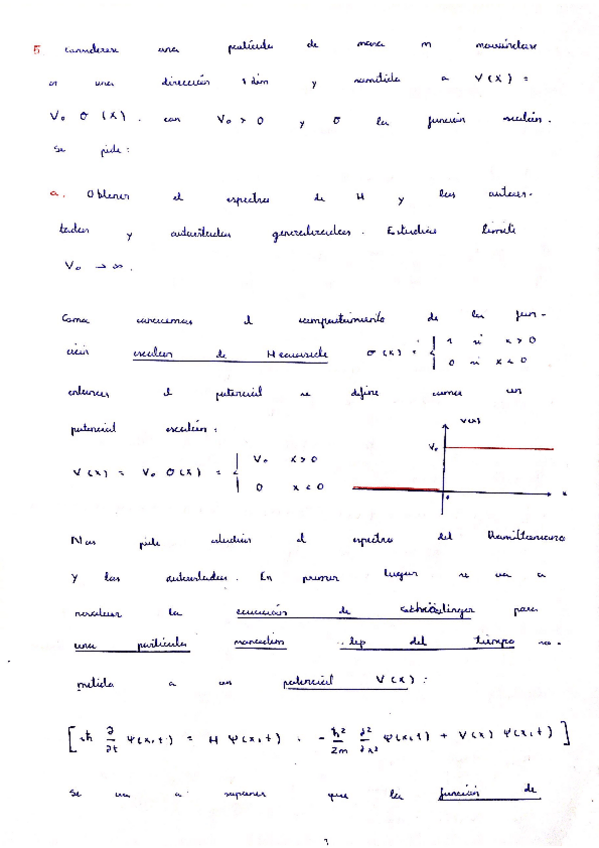 5 considerese una partícula de masa m moviéndose
en una dirección 1 dim y sometida a V(x) =
V₀ θ(x). con V₀ > 0 y θ la función escalón.
Se pide:
a. Obtener el espectro de H y los autoes-
tados y autoestados generalizados. Estudiar límite
V₀ → ∞.
Como conocemos el comportamiento de la fun-
ción escalón de Heaviside θ(x) = { 1 si x > 0
0 si x < 0
entonces el potencial se define como un
potencial escalón:
V(x)
V₀
V(x) = V₀ θ(x) = { V₀ x > 0
0 x < 0
0 x
Nos pide estudiar el espectro del Hamiltoniano
y los autoestados. En primer lugar se va a
resolver la ecuación de Schrödinger para
una partícula dep del tiempo so-
metida a un potencial V(x):
[iħ ∂/∂t Ψ(x,t) = H Ψ(x,t) = -ħ²/2m ∂²/∂x² Ψ(x,t) + V(x) Ψ(x,t)]
Se va a suponer que la función de